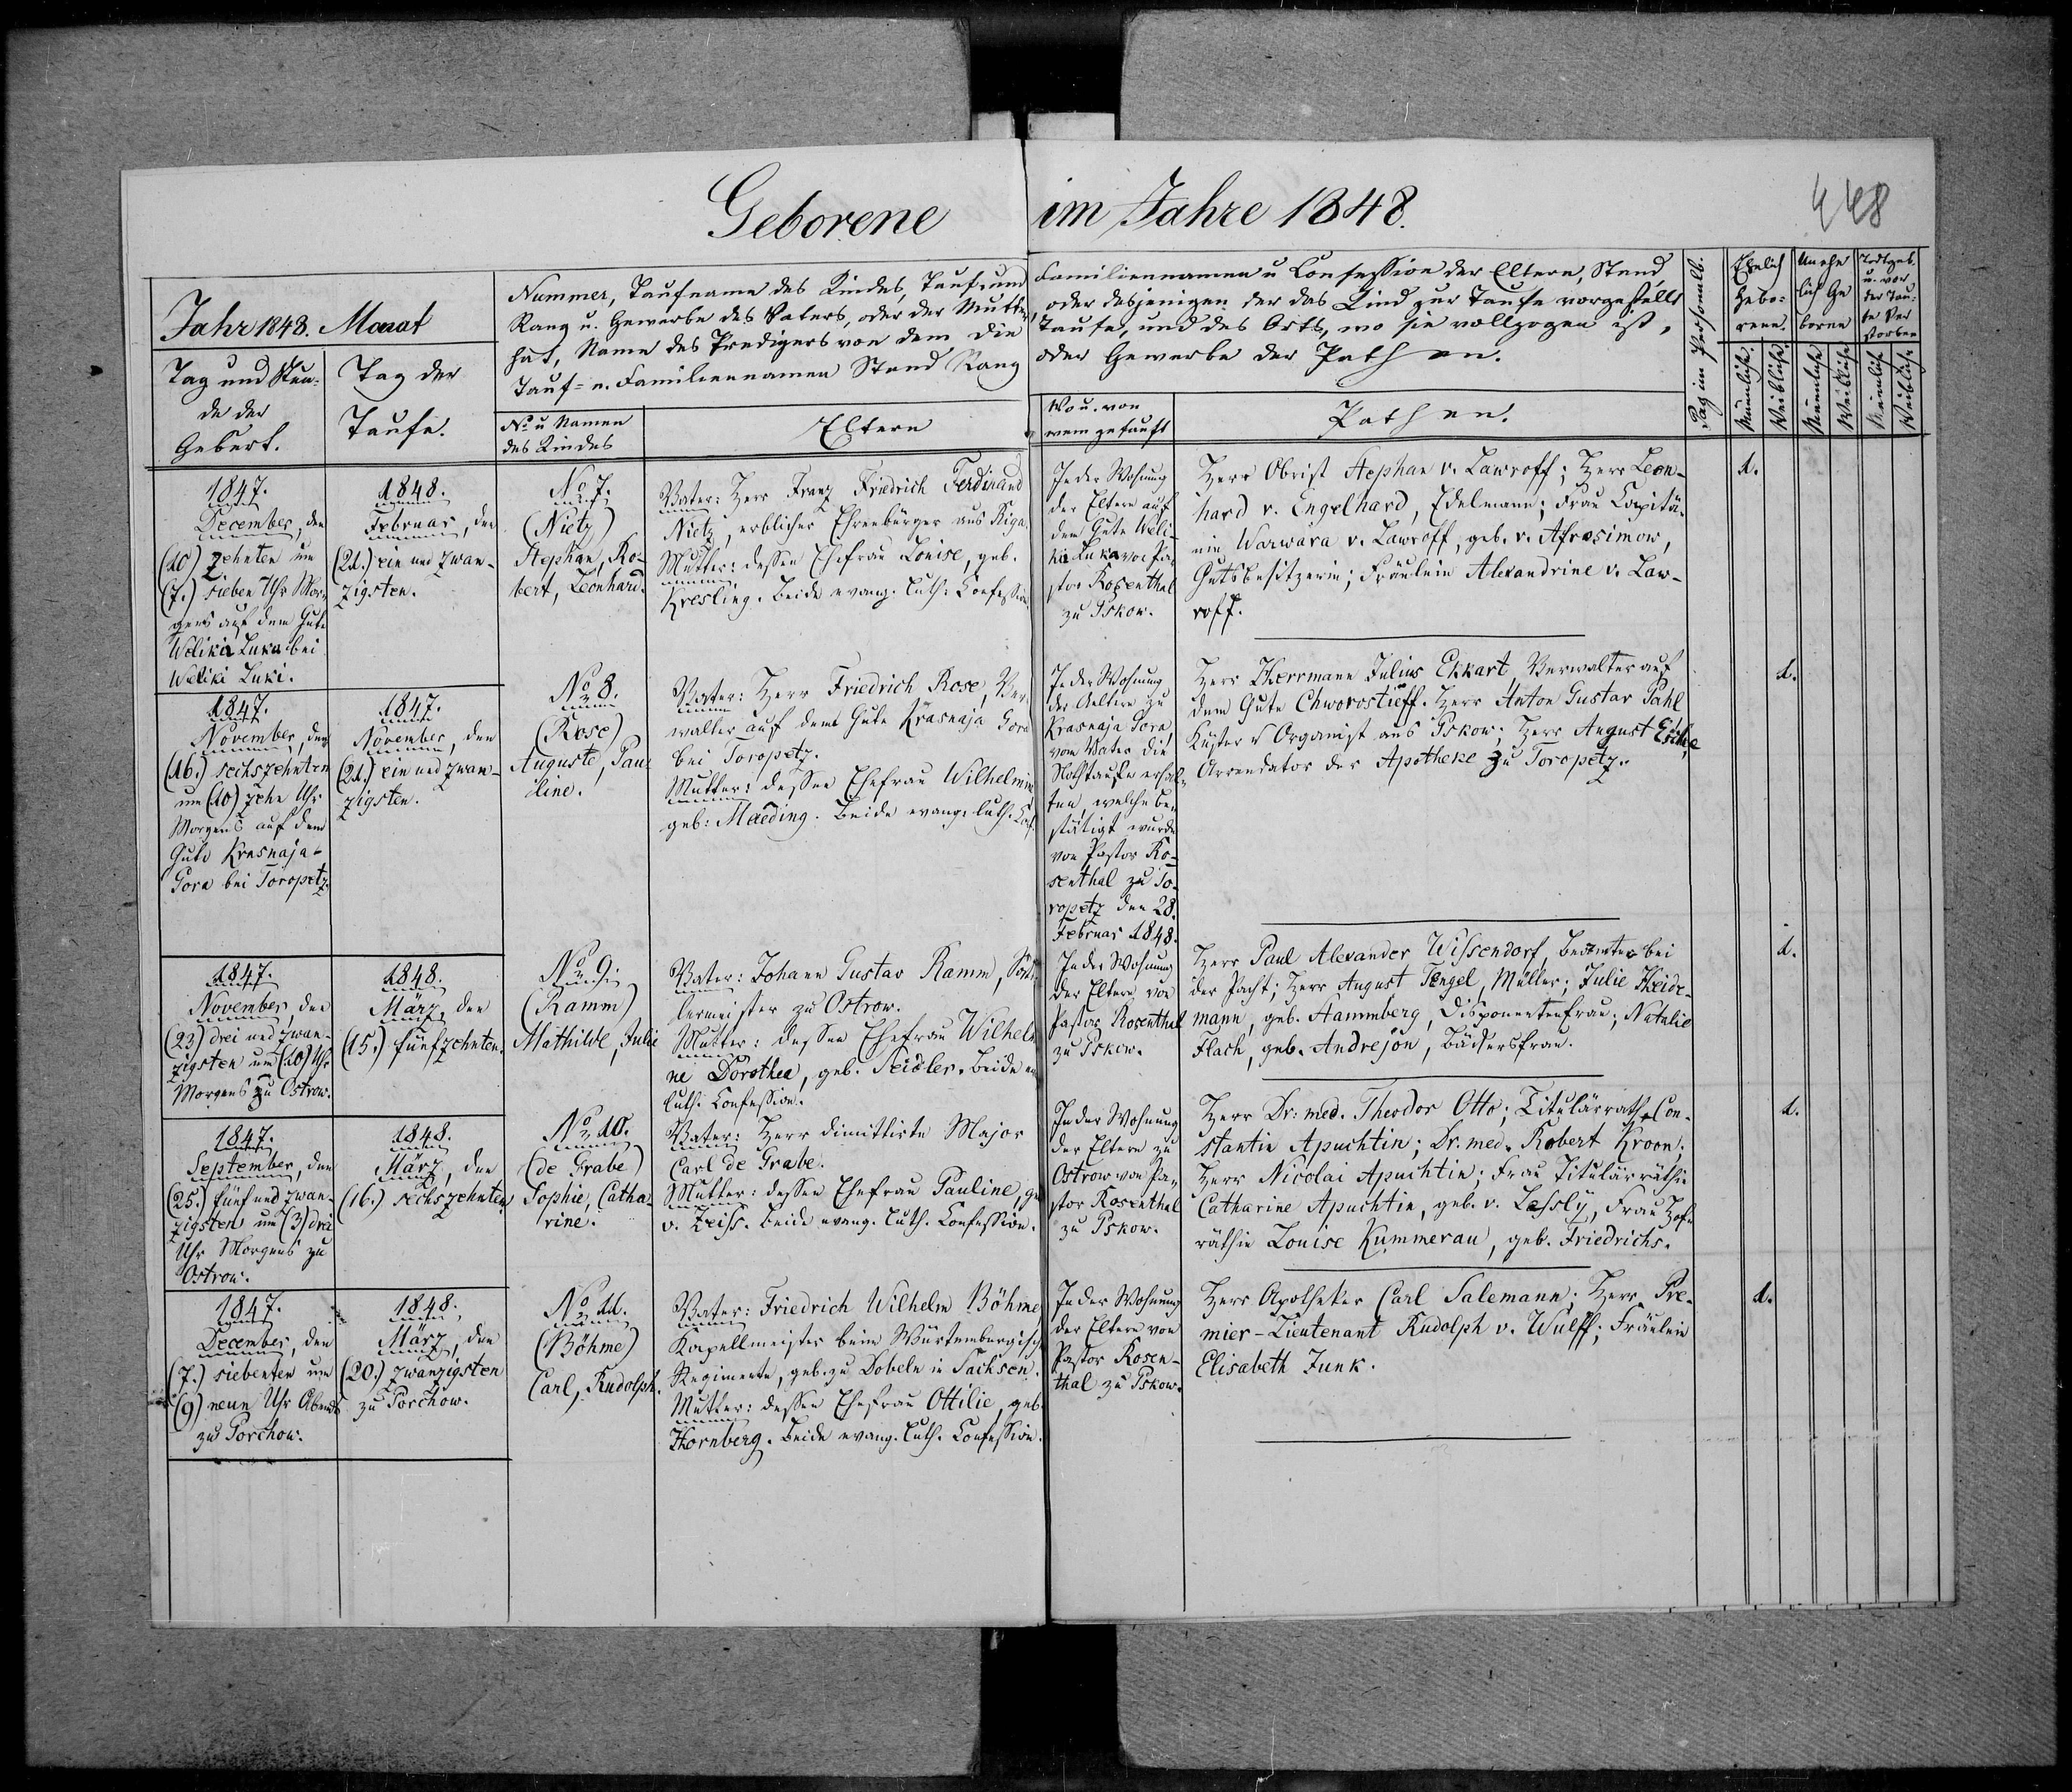 Geborene im Jahre 1848.
448
Jahr 1848. Monat
Tag und Stun-
de der
Geburt.
Tag der
Taufe.
Nummer, Taufname des Kindes, Tauf- und
Familiennamen u Confession der Eltern, Stand,
Rang u. Gewerbe des Vaters, oder der Mutter,
oder desjenigen der das Kind zur Taufe vorgestellt
hat, Name des Predigers von dem die
Taufe, und des Orts, wo sie vollzogen ist,
Tauf- u. Familiennamen Stand Rang
oder Gewerbe der Pathen.
No u Namen
des Kindes
Eltern
Wo u. von
wem getauft
Pathen.
Pag im Personalb.
Ehelich
Gebo-
rene.
Unehe
lich Ge
borne
Todtgeb.
u. vor
der Tau-
fe Ver
storben
Männliche.
Weibliche.
Männliche
Weibliche
Männliche
Weibliche
1847.
December, den
(10) zehnten um
(7.) sieben Uhr Mor-
gens auf dem Gute
Welikia Luka bei
Weliki Luki.
1848.
Februar, den
(21.) ein und zwan-
zigsten.
No 7.
(Nietz)
Stephan, Ro-
bert, Leonhard.
Vater: Herr Franz Friedrich Ferdinand
Nietz, erblicher Ehrenbürger aus Riga.
Mutter: dessen Ehefrau Louise, geb.
Kresling. Beide evang. luth. Confession.
In der Wohnung
der Eltern auf
dem Gute Weli-
kia Luka von Pa-
stor Rosenthal
zu Pskow.
Herr Obrist Stephan v. Lawroff; Herr Leon-
hard v. Engelhard, Edelmann; Frau Capitä-
nin Warwara v. Lawroff, geb. v. Afrosimow,
Gutsbesitzerin; Fräulein Alexandrine v. Law-
roff.
1.
1847.
November, den
(16.) sechszehnten
um (10) zehn Uhr
Morgens auf dem
Gute Krasnaja-
Gora bei Toropetz.
1847.
November, den
(21.) ein und zwan-
zigsten.
No 8.
(Rose)
Auguste, Pau-
line.
Vater: Herr Friedrich Rose, Ver-
walter auf dem Gute Krasnaja Gora
bei Toropetz.
Mutter: dessen Ehefrau Wilhelmine
geb: Maeding. Beide evang. luth. Conf.
In der Wohnung
der Aeltern zu
Krasnaja Gora,
von Vater die
Nothtaufe erhal-
ten, welche be-
stätigt wurde
von Pastor Ro-
senthal zu To-
ropetz den 28.
Februar 1848.
Herr Herrmann Julius Ekkart, Verwalter auf
dem Gute Chworostieff. Herr Anton Gustav Pahl
Küster u Organist aus Pskow; Herr August Eiche,
Arrendator der Apotheke zu Toropetz.
1.
1847.
November, den
(23) drei und zwan-
zigsten um (10) Uhr
Morgens zu Ostrow.
1848.
März, den
(15.) fünfzehnten.
No 9.
(Ramm)
Mathilde, Julie
Vater: Johann Gustav Ramm, Satt-
lermeister zu Ostrow.
Mutter: dessen Ehefrau Wilhelmi-
ne Dorothea, geb. Seidler. Beide ev.
luth. Confession.
In der Wohnung
der Eltern von
Pastor Rosenthal
zu Pskow.
Herr Paul Alexander Wissendorf, Beamter bei
der Pacht; Herr August Tengel, Müller; Julie Heide-
mann, geb. Stammberg, Disponentenfrau; Natalie
Flach, geb. Andrejon, Bäckersfrau.
1.
1847.
September, den
(25.) fünf und zwan-
zigsten um (3) drei
Uhr Morgens zu
Ostrow.
1848.
März, den
(16.) sechszehnten
No 10.
(de Grabe)
Sophie, Catha-
rine.
Vater: Herr dimittirte Major
Carl de Grabe.
Mutter: dessen Ehefrau Pauline, geb.
v. Zeiss. Beide evang. luth. Confession.
In der Wohnung
der Eltern zu
Ostrow von Pa-
stor Rosenthal
zu Pskow.
Herr Dr: med. Theodor Otto; Titulärrath Con-
stantin Apuchtin; Dr. med. Robert Kroon;
Herr Nicolai Apuchtin; Frau Titulärräthin
Catharine Apuchtin, geb. v. Lessly, Frau Hof-
räthin Louise Kummerau, geb. Friedrichs.
1.
1847.
December, den
(7.) siebenten um
(9) neun Uhr Abends
zu Porchow.
1848.
März, den
(20.) zwanzigsten
zu Porchow.
No 11.
(Böhme)
Carl, Rudolph.
Vater: Friedrich Wilhelm Böhme
Kapellmeister beim Würtembergischen
Regimente, geb. zu Dobeln in Sachsen.
Mutter: dessen Ehefrau Ottilie, geb.
Hornberg. Beide evang. luth. Confession.
In der Wohnung
der Eltern von
Pastor Rosen-
thal zu Pskow.
Herr Apotheker Carl Salemann; Herr Pre-
mier-Lieutenant Rudolph v. Wulff; Fräulein
Elisabeth Junk.
1.